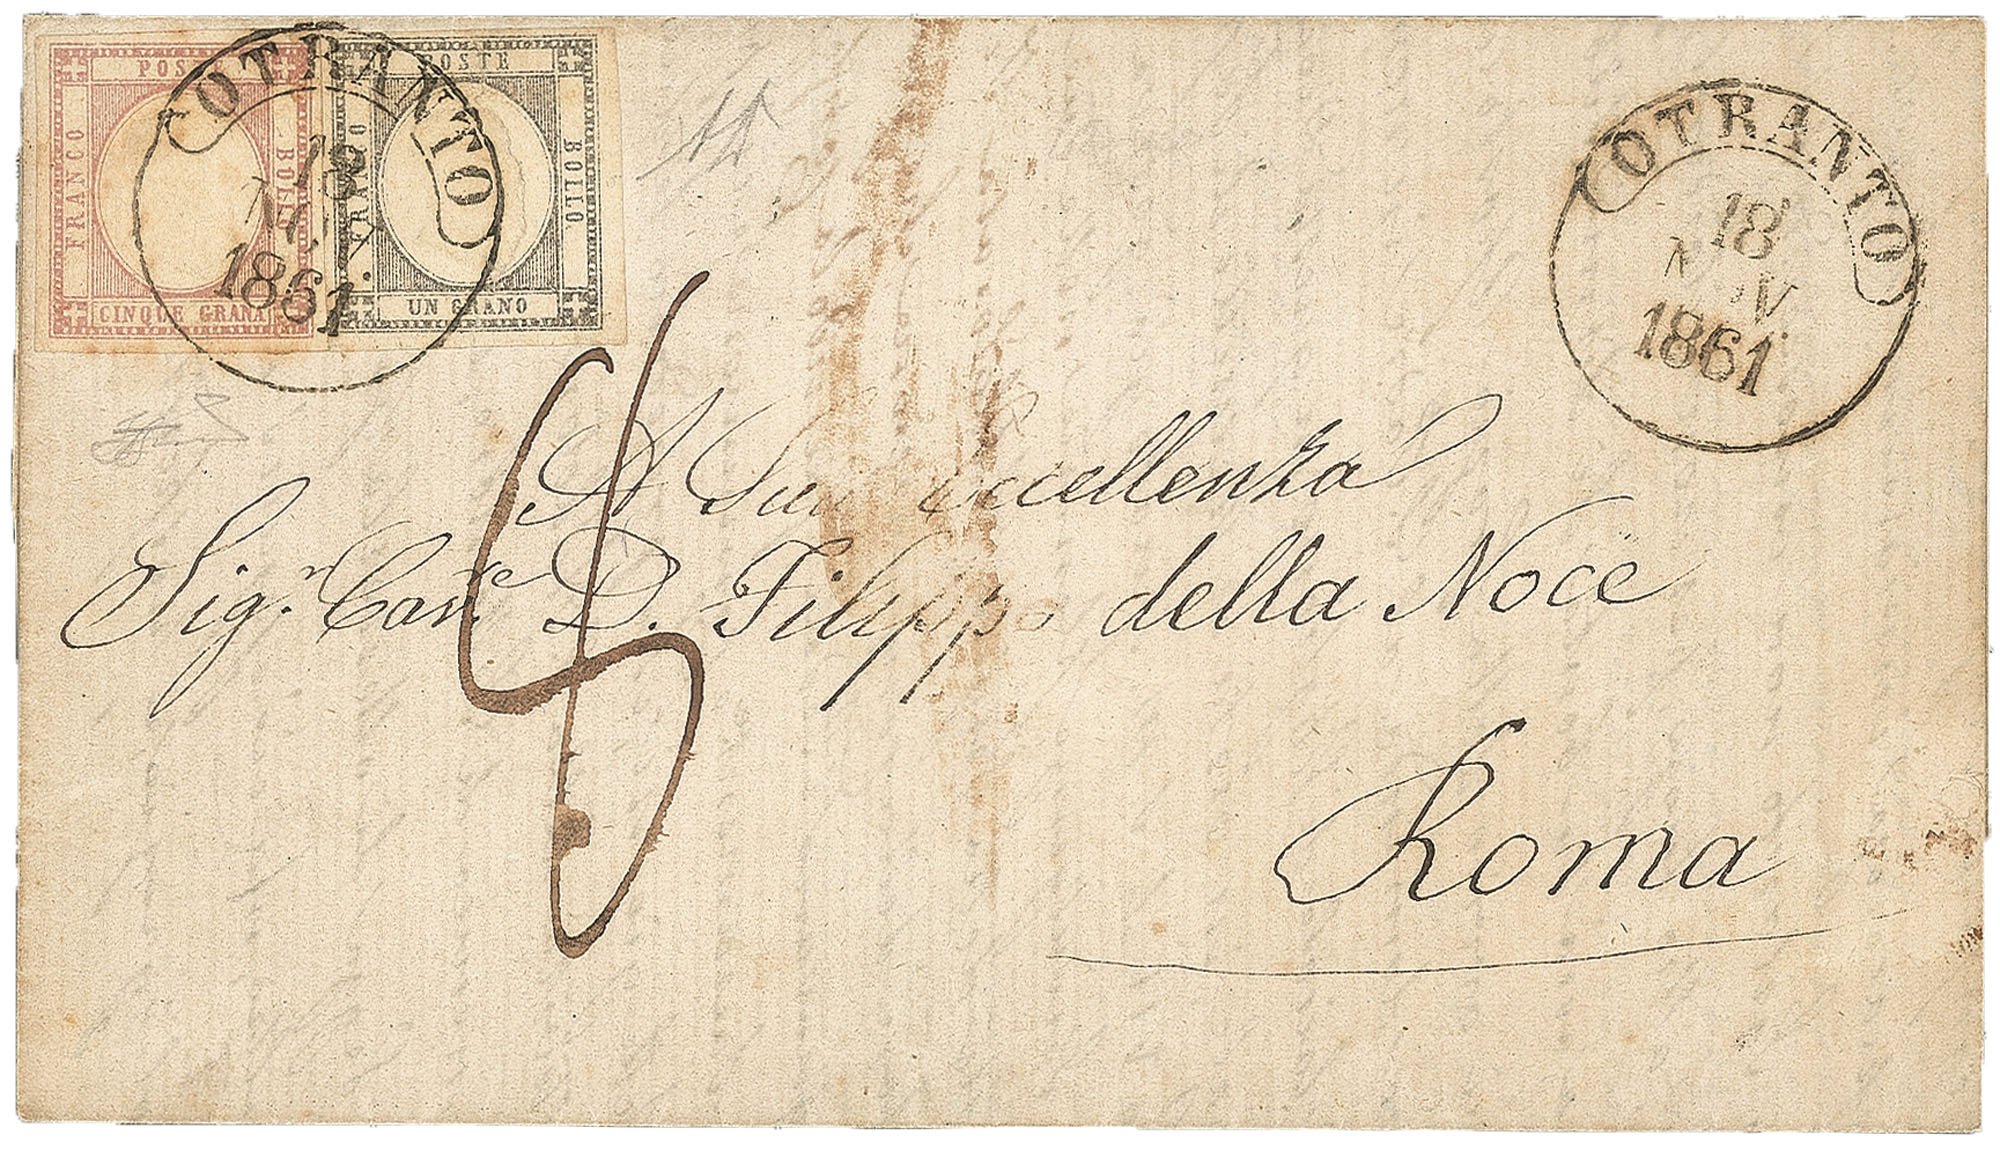 POSTE
FRANCO
BOLLO
CINQUE GRANA
POSTE
FRANCO
BOLLO
UN GRANO
OTRANTO
18
NOV.
1861
OTRANTO
18
NOV
1861
A Sua Eccellenza
Sig.r Cav.re D. Filippo della Noce
Roma